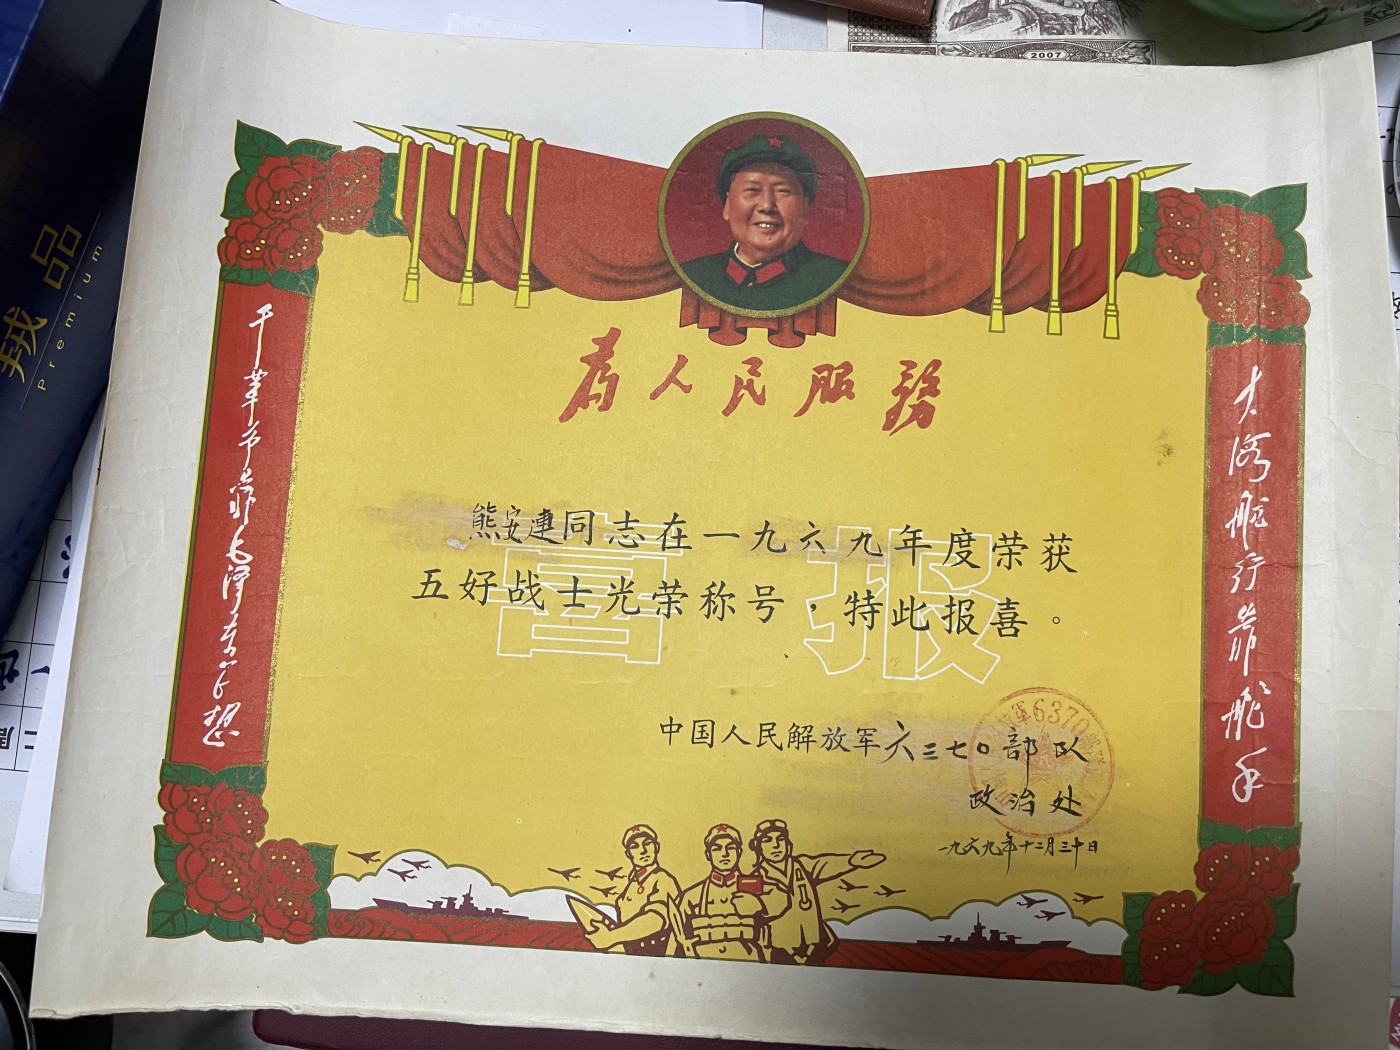 2007
绒品
Premium
为人民服务
大海航行靠舵手
干革命靠毛泽东思想
喜报
熊安連同志在一九六九年度荣获
五好战士光荣称号，特此报喜。
中国人民解放军六三七〇部队
政治处
一九六九年十二月三十日
6370